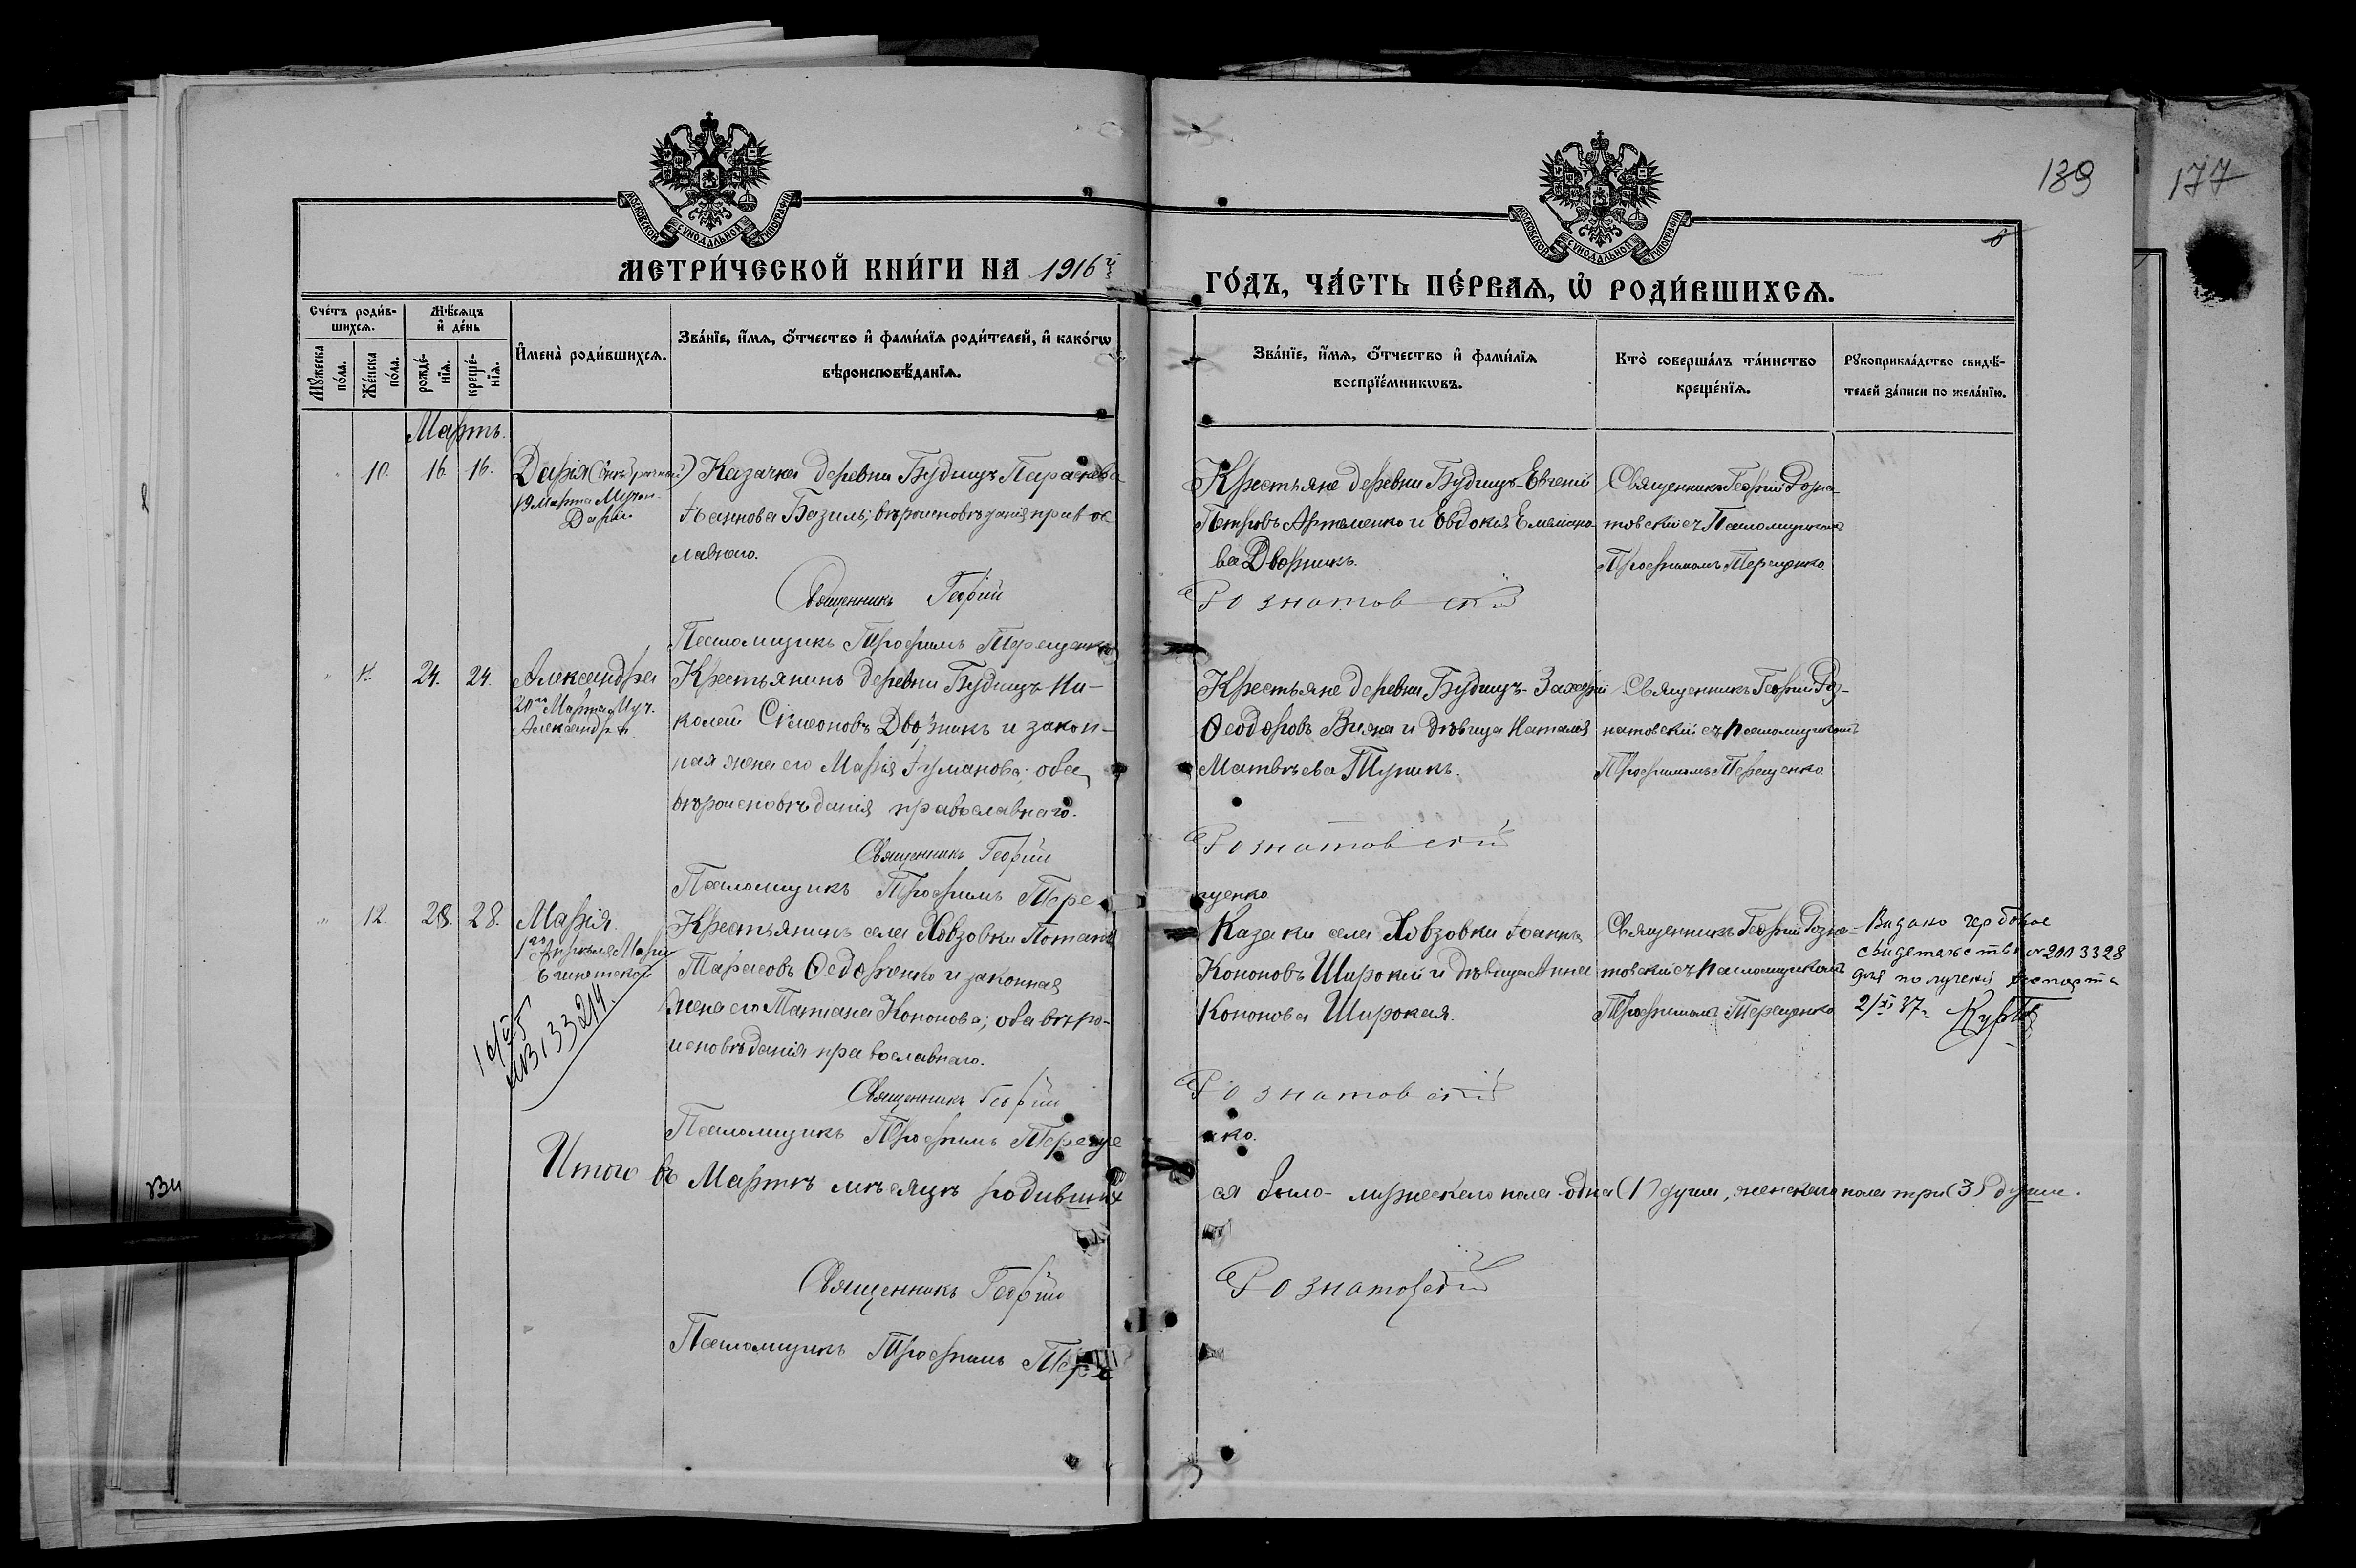 139
177
МОСКОВСКОЙ СѴНОДАЛЬНОЙ ТИПОГРАФІИ
МОСКОВСКОЙ СѴНОДАЛЬНОЙ ТИПОГРАФІИ
8
МЕТРИ́ЧЕСКОЙ КНИ́ГИ НА 1916й
ГО́ДЪ, ЧА́СТЬ ПЕ́РВАѦ, Ѡ РОДИ́ВШИХСѦ.
Сче́тъ роди́в-
шихсѧ.
Мѣ́сѧцъ
и де́нь
Мꙋ́жеска по́ла.
Же́нска по́ла.
рожде́-
нїѧ.
креще́-
нїѧ.
Имена̀ роди́вшихсѧ.
Зва́нїе, и́мѧ, ѻ́тчество и фами́лїѧ роди́телей, и како́гѡ
вѣроисповѣ́данїѧ.
Зва́нїе, и́мѧ, ѻ́тчество и фами́лїѧ
воспрїе́мникѡвъ.
Кто̀ соверша́лъ та́инство
креще́нїѧ.
Рꙋкоприкла́дство свидѣ́-
телей за́писи по жела́нїю.
Мартъ.
10. 16. 16. Дарія (внѣбрачный)
19 Марта Мучен.
Даріи
Казачка деревни Будищъ Параскева
Іоаннова Базиль; вѣроисповѣданія правос
лавнаго.
Священникъ Георгій
Псаломщикъ Трофимъ Терещенко
Крестьяне деревни Будищъ-Евгеній
Петровъ Артеменко и Евдокія Емельяно
ва Дворникъ.
Рознатовскій
Священникъ Георгій Розна-
товскій съ Псаломщикомъ
Трофимомъ Терещенко.
24. 24. Александра
20го Марта Муч.
Александры
Крестьянинъ деревни Будищъ Ни-
колай Сѵмеоновъ Дворникъ и закон-
ная жена его Марія; оба
вѣроисповѣданія православнаго.
Священникъ Георгій
Псаломщикъ Трофимъ Тере
Крестьяне деревни Будищъ-Захарій
Ѳеодоровъ и дѣвица Наталія
Матвѣева Тупикъ.
Рознатовскій
щенко
Священникъ Георгій Роз-
натовскій съ псаломщикомъ
Трофимомъ Терещенко
12. 28. 28. Марія.
1го Апрѣля Маріи
Египетской
Крестьянинъ села Ховзовки Потапъ
Тарасовъ Ѳедоренко и законная
жена его Татіана Кононова; оба вѣро-
исповѣданія православнаго.
Священникъ Георгій
Псаломщикъ Трофимъ Тереще
Казаки села Ховзовки Іоаннъ
Кононовъ Широкій и дѣвица Анна
Кононова Широкая.
Рознатовскій
нко.
Священникъ Георгій Розна-
товскій съ псаломщикомъ
Трофимомъ Терещенко
Видано гербовое
свидетельство №2003328
для получения паспорта
2/XI 37г.
Итого въ Мартѣ мѣсяцѣ родивших
ся было- мужескаго пола одна (1) душа, женскаго пола три (3) души.
Священникъ Георгій
Рознатовскій
Псаломщикъ Трофимъ Тере